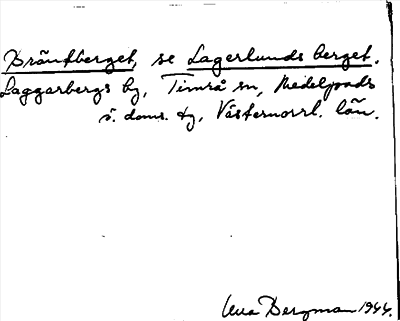 Bräntberget, se Lagerlunds berget.
Laggarbergs by, Timrå sn, Medelpads
ö. doms. tg, Västernorrl. län.
Bergman 1944.